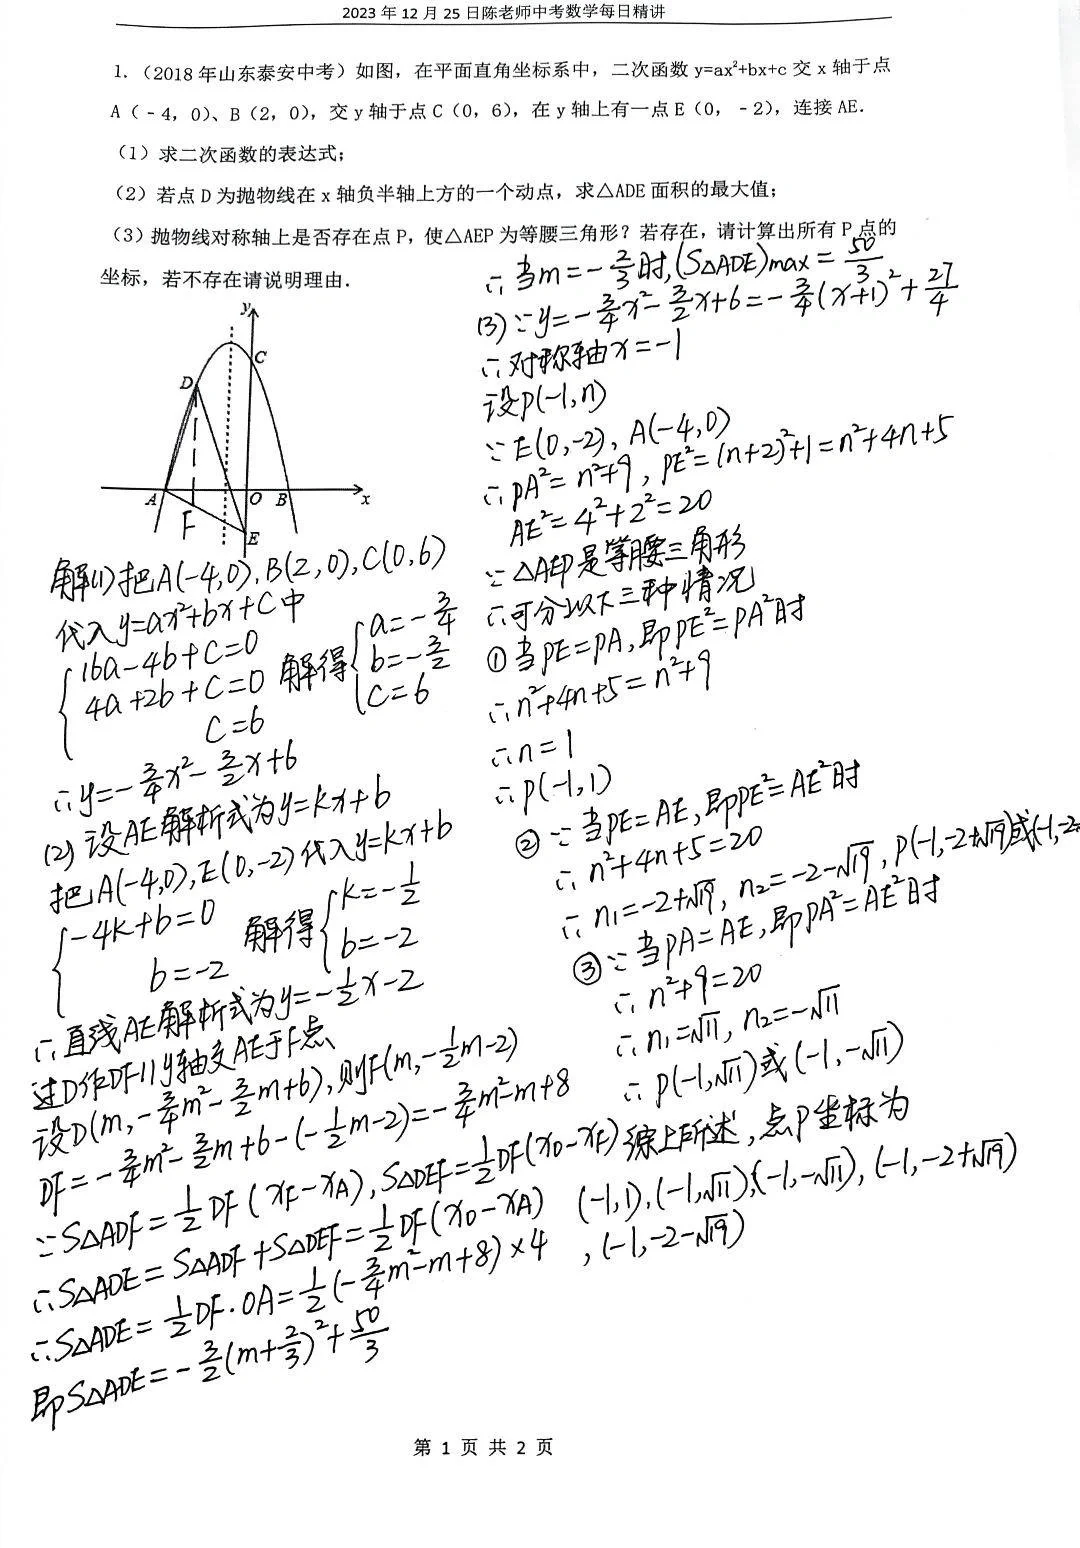 2023 年 12 月 25 日陈老师中考数学每日精讲
1.（2018 年山东泰安中考）如图，在平面直角坐标系中，二次函数 y=ax²+bx+c 交 x 轴于点
A（﹣4，0）、B（2，0），交 y 轴于点 C（0，6），在 y 轴上有一点 E（0，﹣2），连接 AE．
（1）求二次函数的表达式；
（2）若点 D 为抛物线在 x 轴负半轴上方的一个动点，求△ADE 面积的最大值；
（3）抛物线对称轴上是否存在点 P，使△AEP 为等腰三角形？若存在，请计算出所有 P 点的
坐标，若不存在请说明理由．
y
C
D
A
F
O
B
x
E
解(1)把A(-4,0),B(2,0),C(0,6)
代入y=ax²+bx+c中
{16a-4b+c=0
4a+2b+c=0
c=6
解得{a=-3/4
b=-3/2
c=6
∴y=-3/4x²-3/2x+6
(2)设AE解析式为y=kx+b
把A(-4,0),E(0,-2)代入y=kx+b
{-4k+b=0
b=-2
解得{k=-1/2
b=-2
∴直线AE解析式为y=-1/2x-2
过D作DF∥y轴交AE于F点
设D(m,-3/4m²-3/2m+6),则F(m,-1/2m-2)
DF=-3/4m²-3/2m+6-(-1/2m-2)=-3/4m²-m+8
∵S△ADF=1/2DF(xF-xA),S△DEF=1/2DF(xO-xF)
∴S△ADE=S△ADF+S△DEF=1/2DF(xO-xA)
∴S△ADE=1/2DF·OA=1/2(-3/4m²-m+8)×4
即S△ADE=-3/2(m+2/3)²+50/3
∴当m=-2/3时,(S△ADE)max=50/3
(3)∵y=-3/4x²-3/2x+6=-3/4(x+1)²+27/4
∴对称轴x=-1
设P(-1,n)
∵E(0,-2),A(-4,0)
∴PA²=n²+9,PE²=(n+2)²+1=n²+4n+5
AE²=4²+2²=20
∵△AEP是等腰三角形
∴可分以下三种情况
①当PE=PA,即PE²=PA²时
∴n²+4n+5=n²+9
∴n=1
∴P(-1,1)
②∵当PE=AE,即PE²=AE²时
∴n²+4n+5=20
∴n₁=-2+√19,n₂=-2-√19,P(-1,-2+√19)或(-1,-2-
③∵当PA=AE,即PA²=AE²时
∴n²+9=20
∴n₁=√11,n₂=-√11
∴P(-1,√11)或(-1,-√11)
综上所述,点P坐标为
(-1,1),(-1,√11),(-1,-√11),(-1,-2+√19)
,(-1,-2-√19)
第 1 页 共 2 页